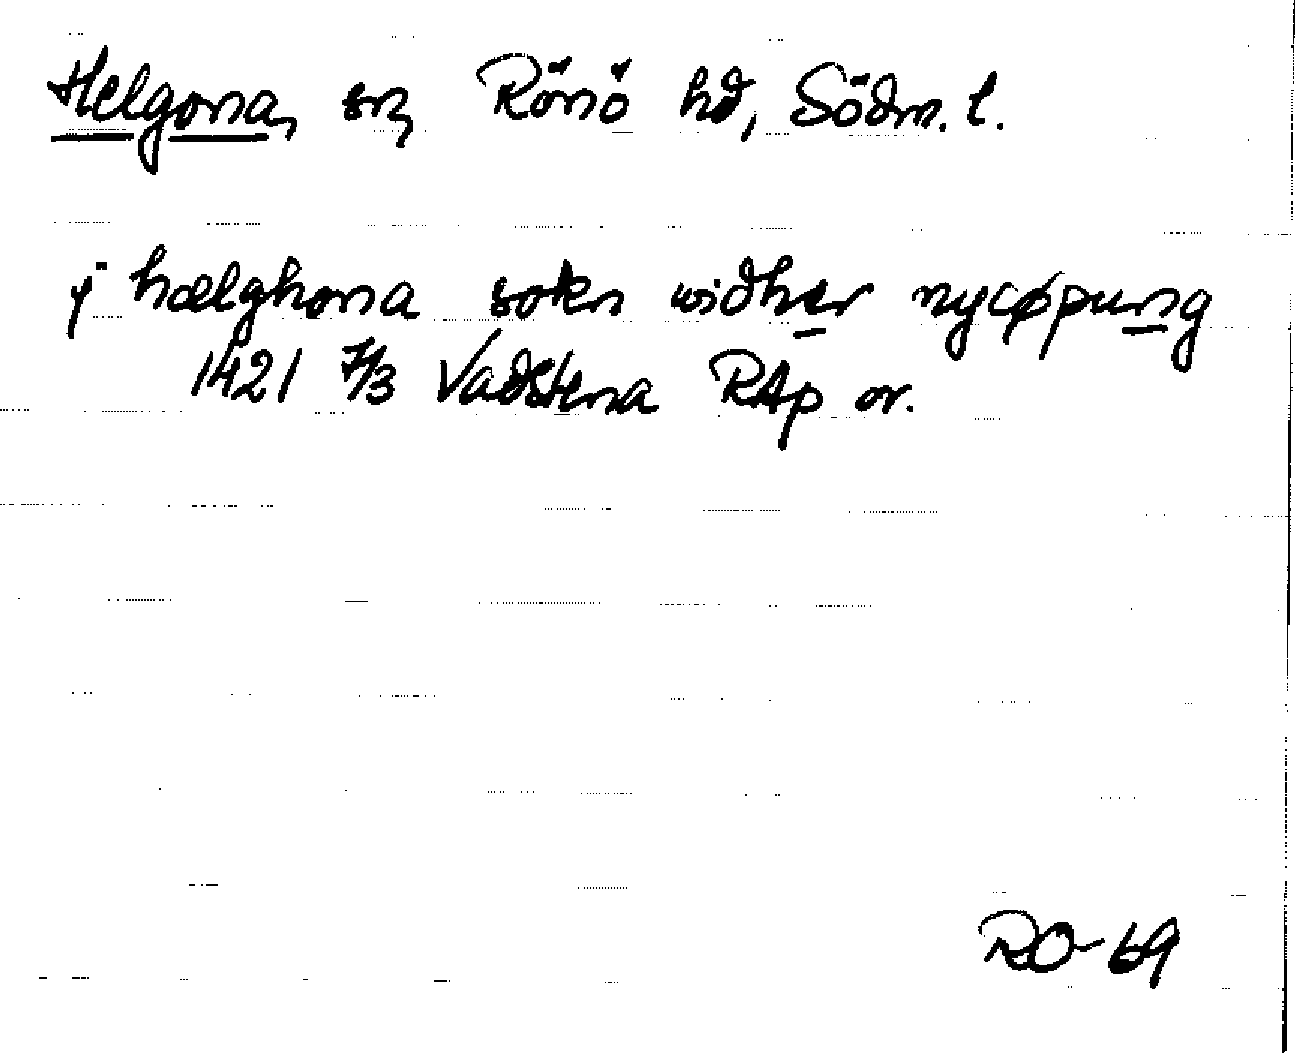 Helgona, sn, Rönö hd, Södm. l.
j hælghona sokn widher nycøpung
1421 7/3 Vadstena RAp or.
RO-69